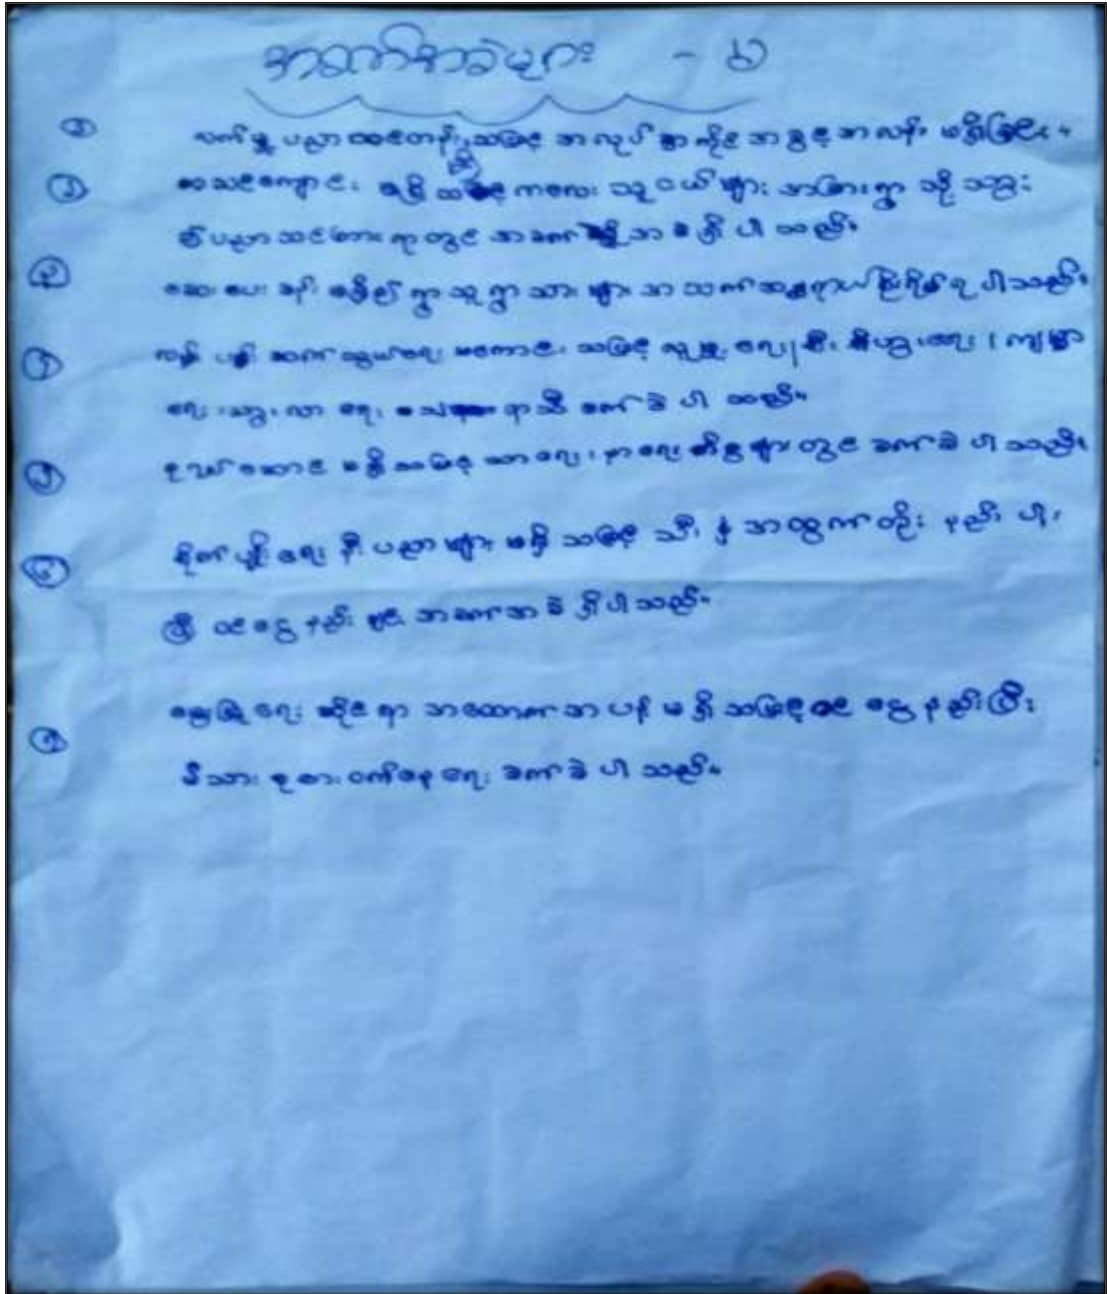 အခက်အခဲများ - ၆
၁ လက်မှု ပညာ သင်တန်း မရှိ သဖြင့် အလုပ် အကိုင် အခွင့် အလန်း မရှိခြင်း။
၂ စာသင်ကျောင်း မရှိ သဖြင့် ကလေး သူငယ် များ အခြား ရွာ သို့ သွား
၍ ပညာ သင်ကြား ရာတွင် အခက် အခဲ ရှိ ပါ သည်။
၃ ဆေးပေးခန်း မရှိ၍ ရွာသူ ရွာသား များ အသက်အန္တရာယ် စိုးရိမ် ရ ပါသည်။
၄ လမ်း ပန်း ဆက်သွယ်ရေး မကောင်း သဖြင့် လူမှု ရေး၊ စီး ပွား ရေး၊ ကျမ္မာ
ရေး သွား လာ ရေး ရာသီ ခက် ခဲ ပါ သည်။
၅ မရှိ သဖြင့် သာရေး နာရေး ကိစ္စများ တွင် ခက် ခဲ ပါ သည်။
၆ စိုက်ပျိုး ရေး နီး ပညာ များ မရှိ သဖြင့် သီး နှံ အထွက်တိုး နည်း ပါး
ပြီး ဝင်ငွေ နည်း အခက်အခဲ ရှိပါသည်။
၇ မွေးမြူရေး ဆိုင်ရာ အထောက်အပံ့ မရှိ သဖြင့် ဝင် ငွေ နည်းပြီး
မိသား စု စား ဝတ်နေ ရေး ခက် ခဲ ပါ သည်။